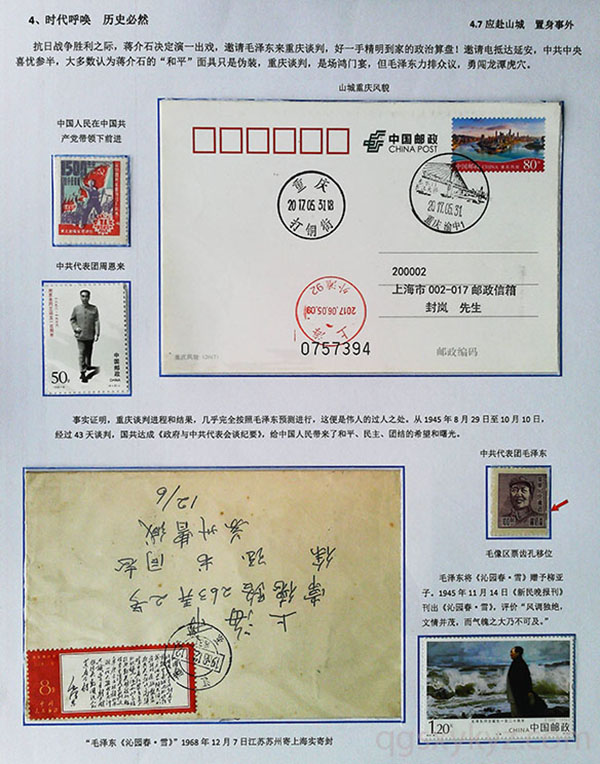 4、时代呼唤 历史必然
4.7 应赴山城 置身事外
抗日战争胜利之际，蒋介石决定演一出戏，邀请毛泽东来重庆谈判，好一手精明到家的政治算盘！邀请电抵达延安，中共中央
喜忧参半，大多数认为蒋介石的“和平”面具只是伪装，重庆谈判，是场鸿门宴，但毛泽东力排众议，勇闯龙潭虎穴。
山城重庆风貌
中国人民在中国共
产党带领下前进
中国邮政
CHINA POST
80分
重庆
2017.05.31.18
打铜街
2017.05.31.
重庆 渝中1
200002
上海市 002-017 邮政信箱
封岚 先生
上海
2017.06.05.09
0757394
邮政编码
中共代表团周恩来
50分
中国邮政
CHINA
事实证明，重庆谈判进程和结果，几乎完全按照毛泽东预测进行，这便是伟人的过人之处。从 1945 年 8 月 29 日至 10 月 10 日，
经过 43 天谈判，国共达成《政府与中共代表会谈纪要》，给中国人民带来了和平、民主、团结的希望和曙光。
中共代表团毛泽东
毛像区票齿孔移位
毛泽东将《沁园春·雪》赠予柳亚
子。1945 年 11 月 14 日《新民晚报刊》
刊出《沁园春·雪》，评价“风调独绝，
文情并茂，而气魄之大乃不可及。”
上海市
常德路263弄2号
徐
同志
苏州
12/6
8分
1.20元
CHINA 中国邮政
“毛泽东《沁园春·雪》”1968 年 12 月 7 日江苏苏州寄上海实寄封